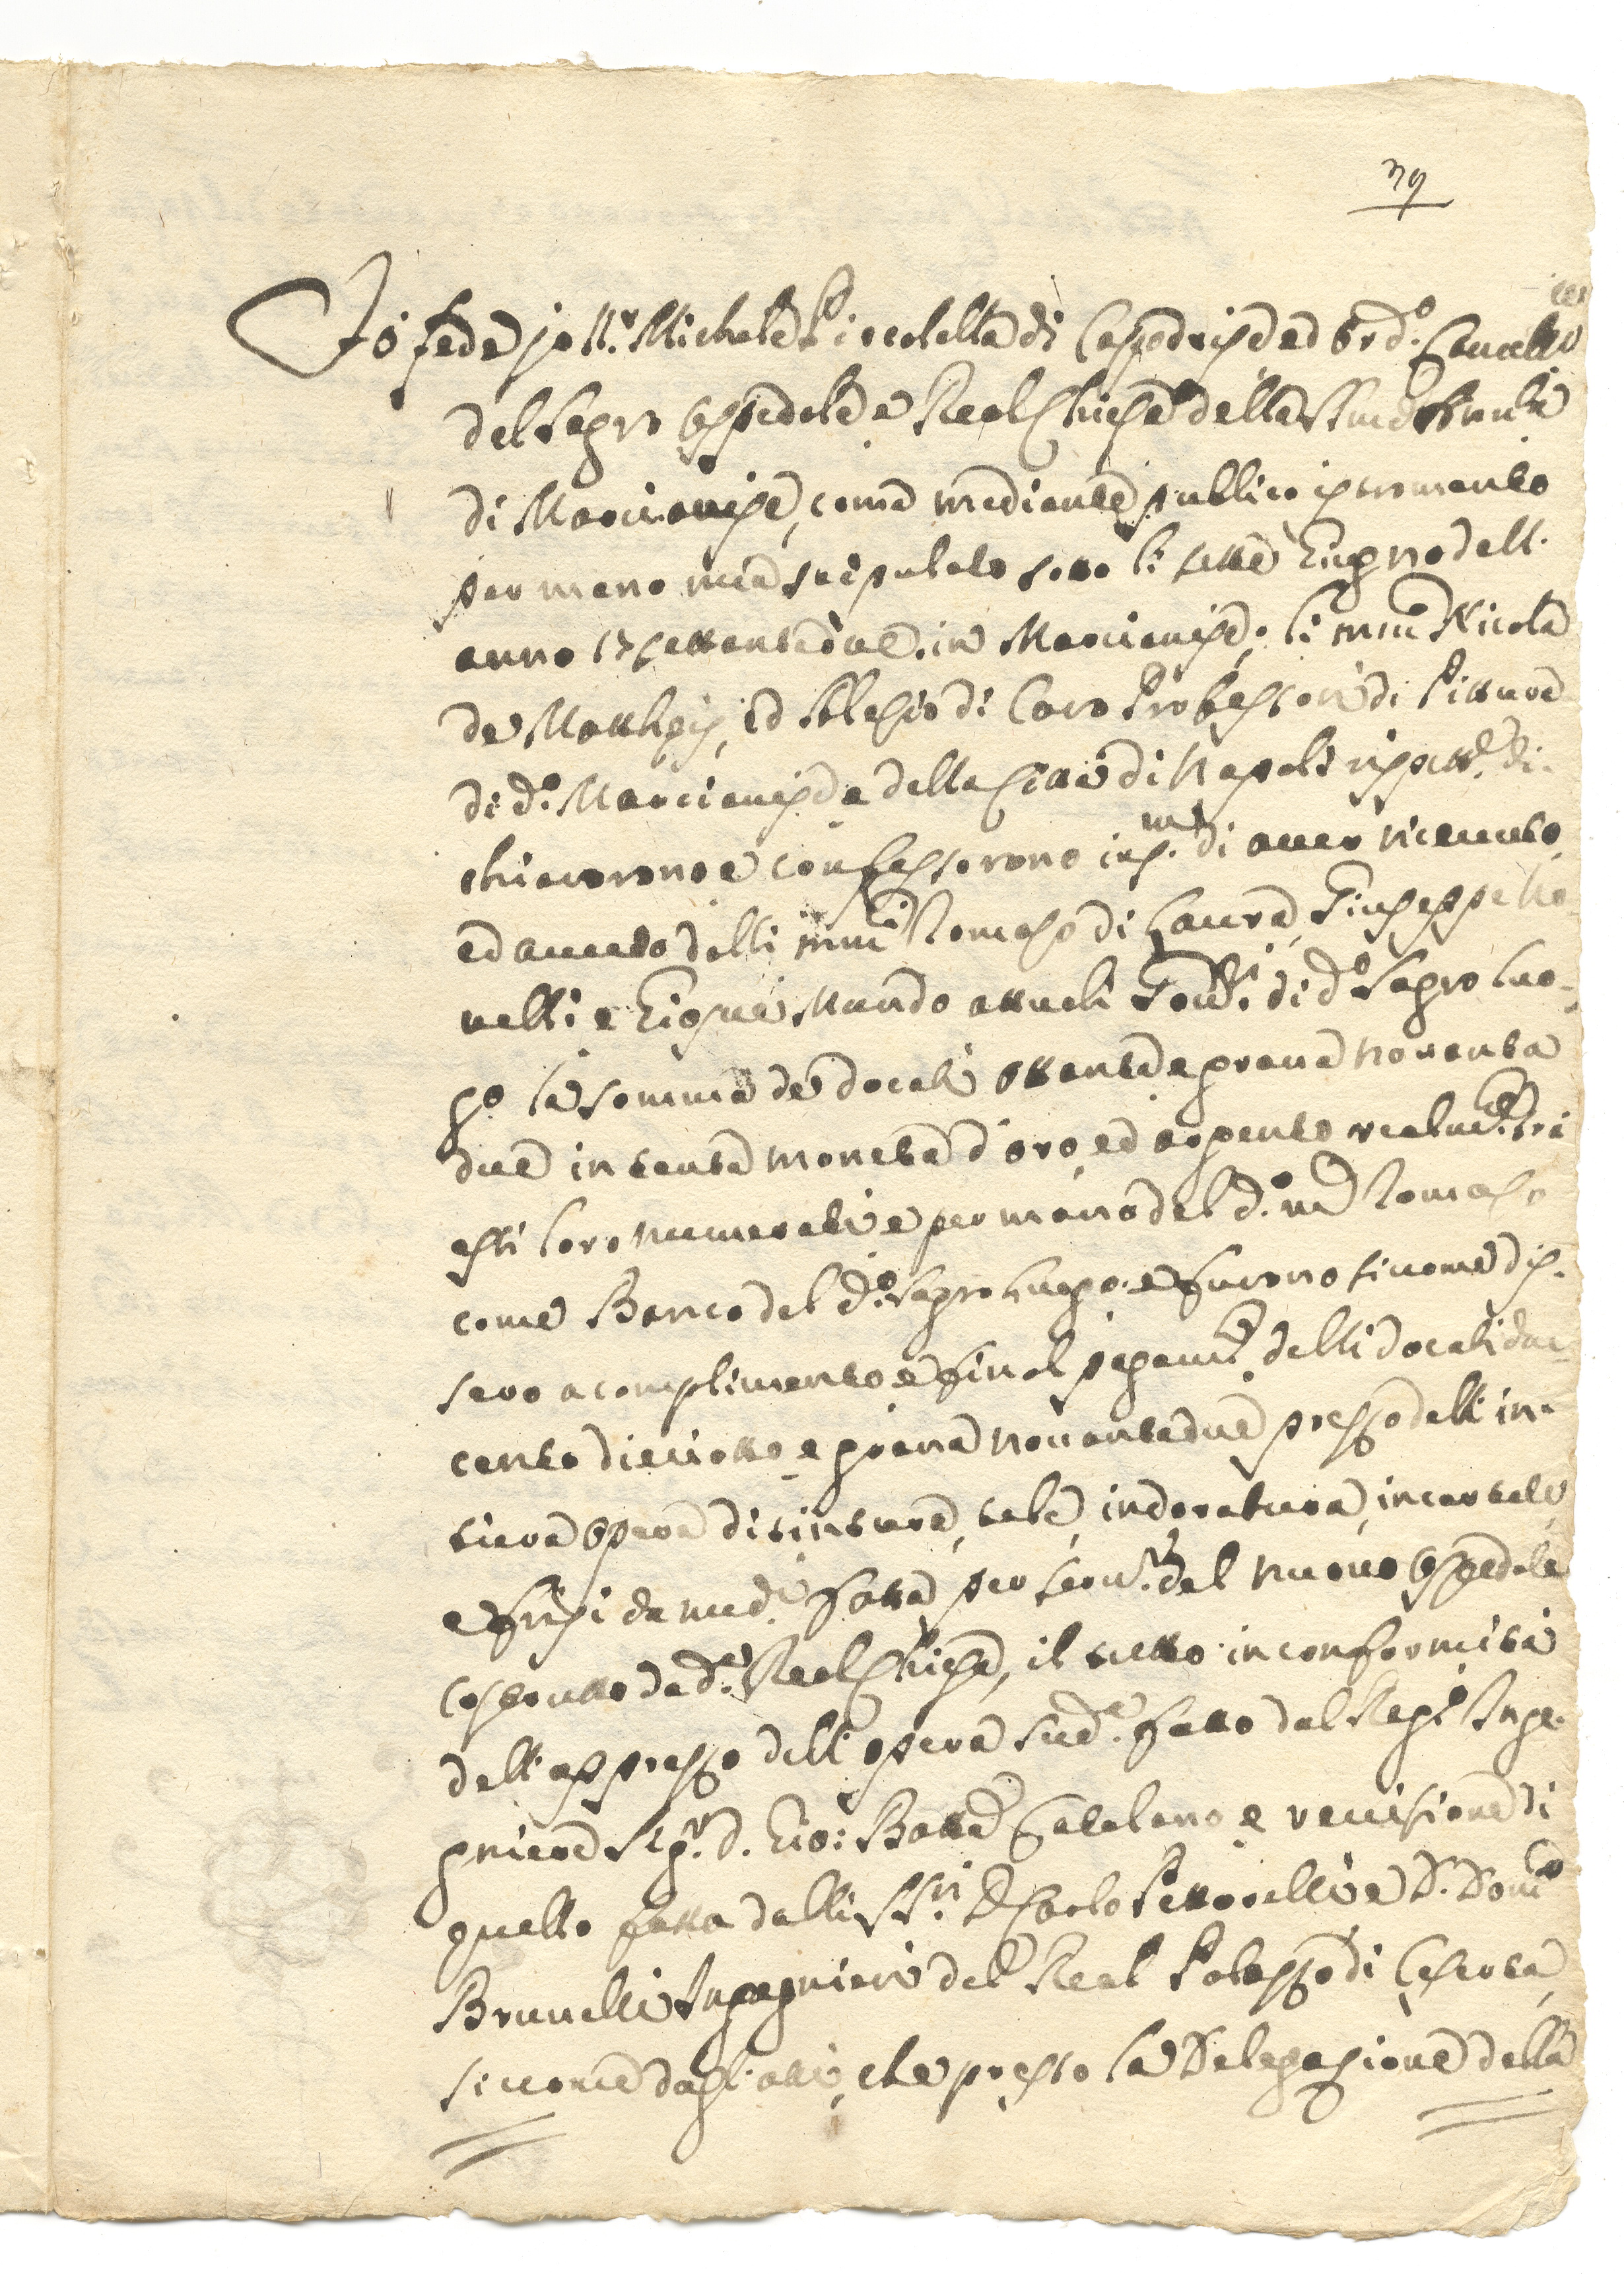 39
Fò fede jo Nr. Michele Piccolella di Capodrise ed ord.o Cancell.o
del Sagro Ospedale e Real Chiesa della SS.ma Annunta
di Marcianise, come mediante publico istromento
per mano mia stipulato sotto li sette Giugno dell'
anno 17settantadue in Marcianise, li mci Nicola
de Matthejs, ed Alesio di Caro Professori di Pittura
di d.o Marcianise e della Città di Napoli rispett.e di-
chiarorono e confessorono in di aver ricevuto
ed avuto dalli mci Tomaso di Laura, Giuseppe No-
velli e Giosuè Mundo attuali Gov.ri di d.o Sagro Luo-
go la somma de docati ottanta e grana novanta
due in tanta moneta d'oro, ed argento realm.te ad
essi loro numerati e per mano del d.o m.co Tomaso
come Banco del d.o Sagro Luogo: e furono sicome dis-
sero a complimento e final pagam.to delli docati due
cento dieciotto e grana novantadue prezzo dell' in-
tiera opera di tintura, tele, indoratura, incartate
e fusi da med.i fatta per serv.o del nuovo Ospedale
costrutto da d.a Real Chiesa, il tutto in conformità
dell'apprezzo dell' opera sud.a fatto dal Reg.o Inge-
gniere Sig.r d. Gio: Batta Catalano e revisione di
quello fatta dalli SS.ri D. Carlo Pattorelli e D. Dom.co
Brunelli Ingegnieri del Real Palazzo di Caserta,
sicome dagl'atti, che presso la Delegazione della